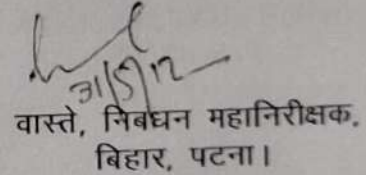 31/5/12
वास्ते, निबंधन महानिरीक्षक,
बिहार, पटना।